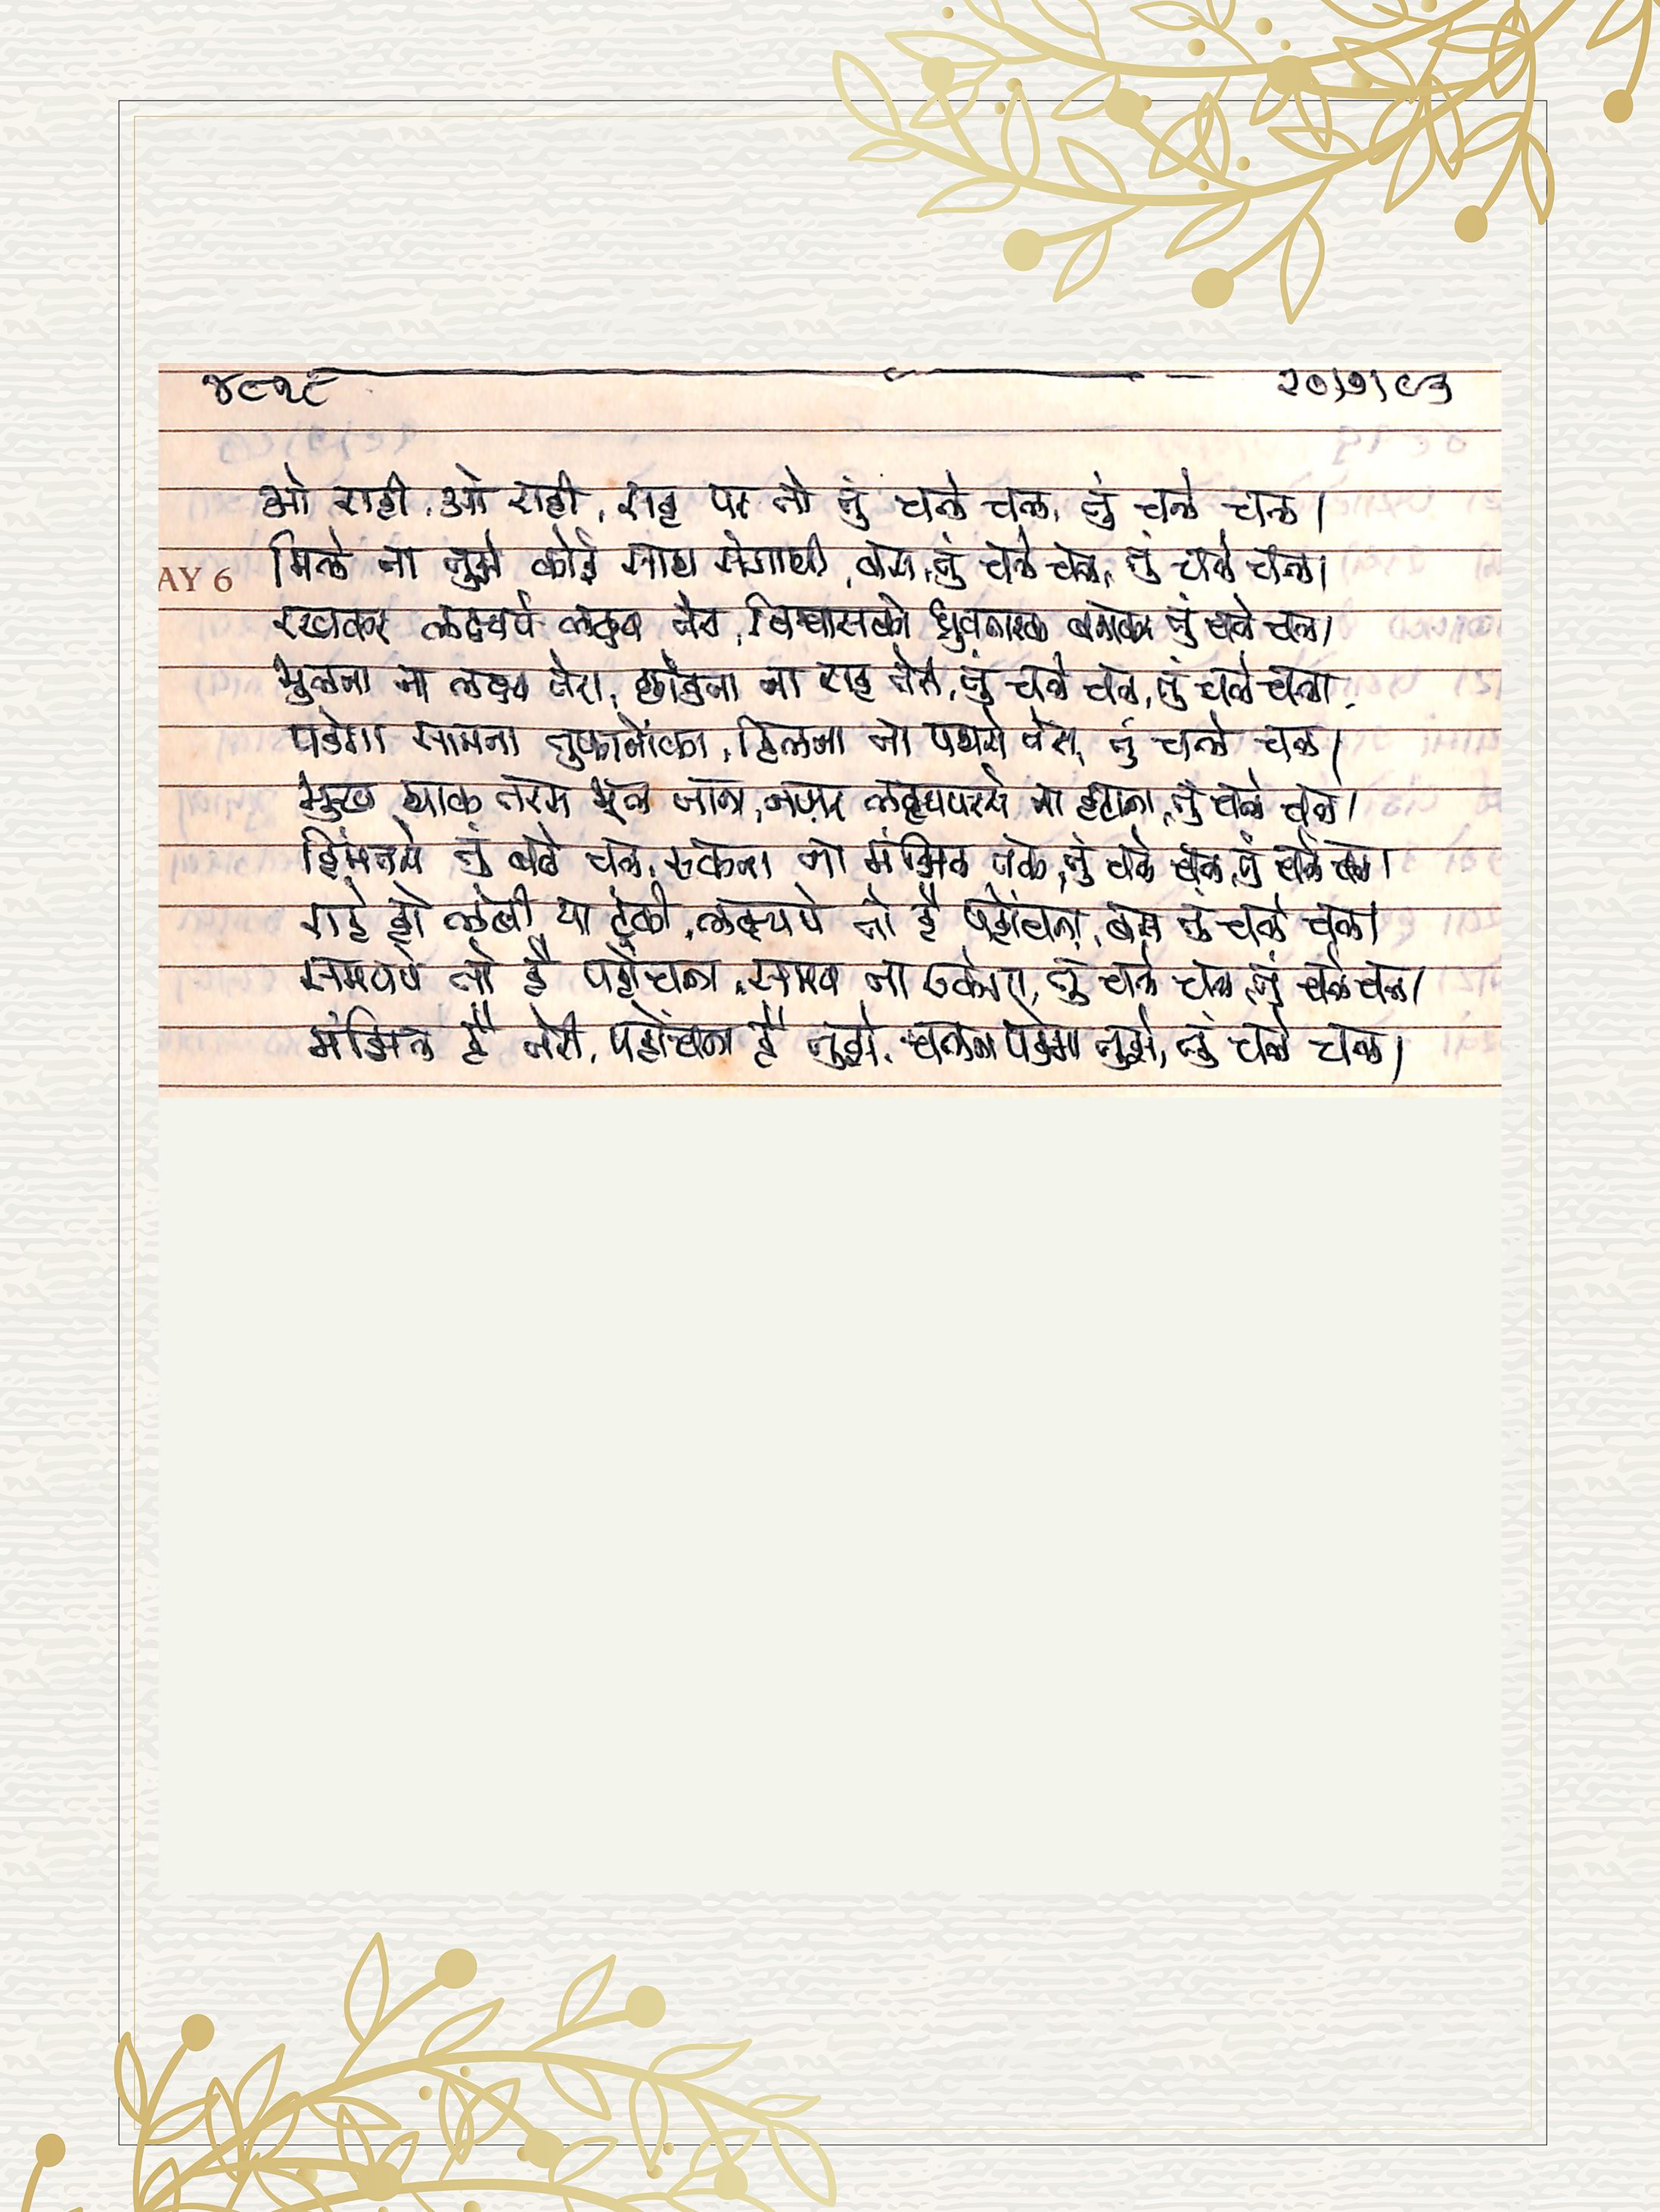 ४८१८ २०।७।९३
ओ राही, ओ राही, राह पर तो तुं चले चल, तुं चले चल।
मिले ना तुझे कोई साथ संगाथी, बस, तुं चले चल, तुं चले चल।
AY 6
रखकर लक्ष्यपे लक्ष्य तेरा, विश्वासको ध्रुवतारक बनाकर तुं चले चल।
भुलना ना लक्ष्य तेरा, छोडना ना राह तेरी, तुं चले चल, तुं चले चल।
पडेगा सामना तुफानोंका, हिलना ना पथसे तेरा, तुं चले चल।
भुख थाक तरस भूल जाना, नज़र लक्ष्यपरसे ना हटाना, तुं चले चल।
हिंमतसे तुं बढे चल, रुकना ना मंझिल तक, तुं चले चल, तुं चले चल।
राहे हो लंबी या टुंकी, लक्ष्यपे तो है पहोंचना, बस तुं चले चल।
समयपे तो है पहोंचना, समय ना रुकेगा, तुं चले चल, तुं चले चल।
मंझिल है तेरी, पहोंचना है तुझे, चलना पडेगा तुझे, तुं चले चल।